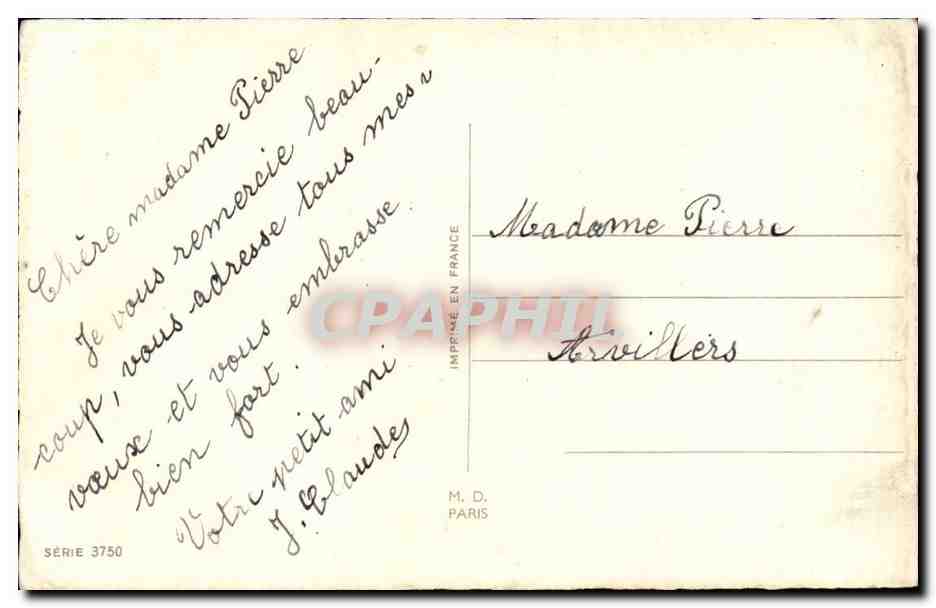 Chère madame Pierre
Je vous remercie beau-
coup, vous adresse tous mes
vœux et vous embrasse
bien fort.
Votre petit ami
J. Claude
Madame Pierre
Arvillers
IMPRIMÉ EN FRANCE
M. D.
PARIS
SÉRIE 3750
CPAPHIL